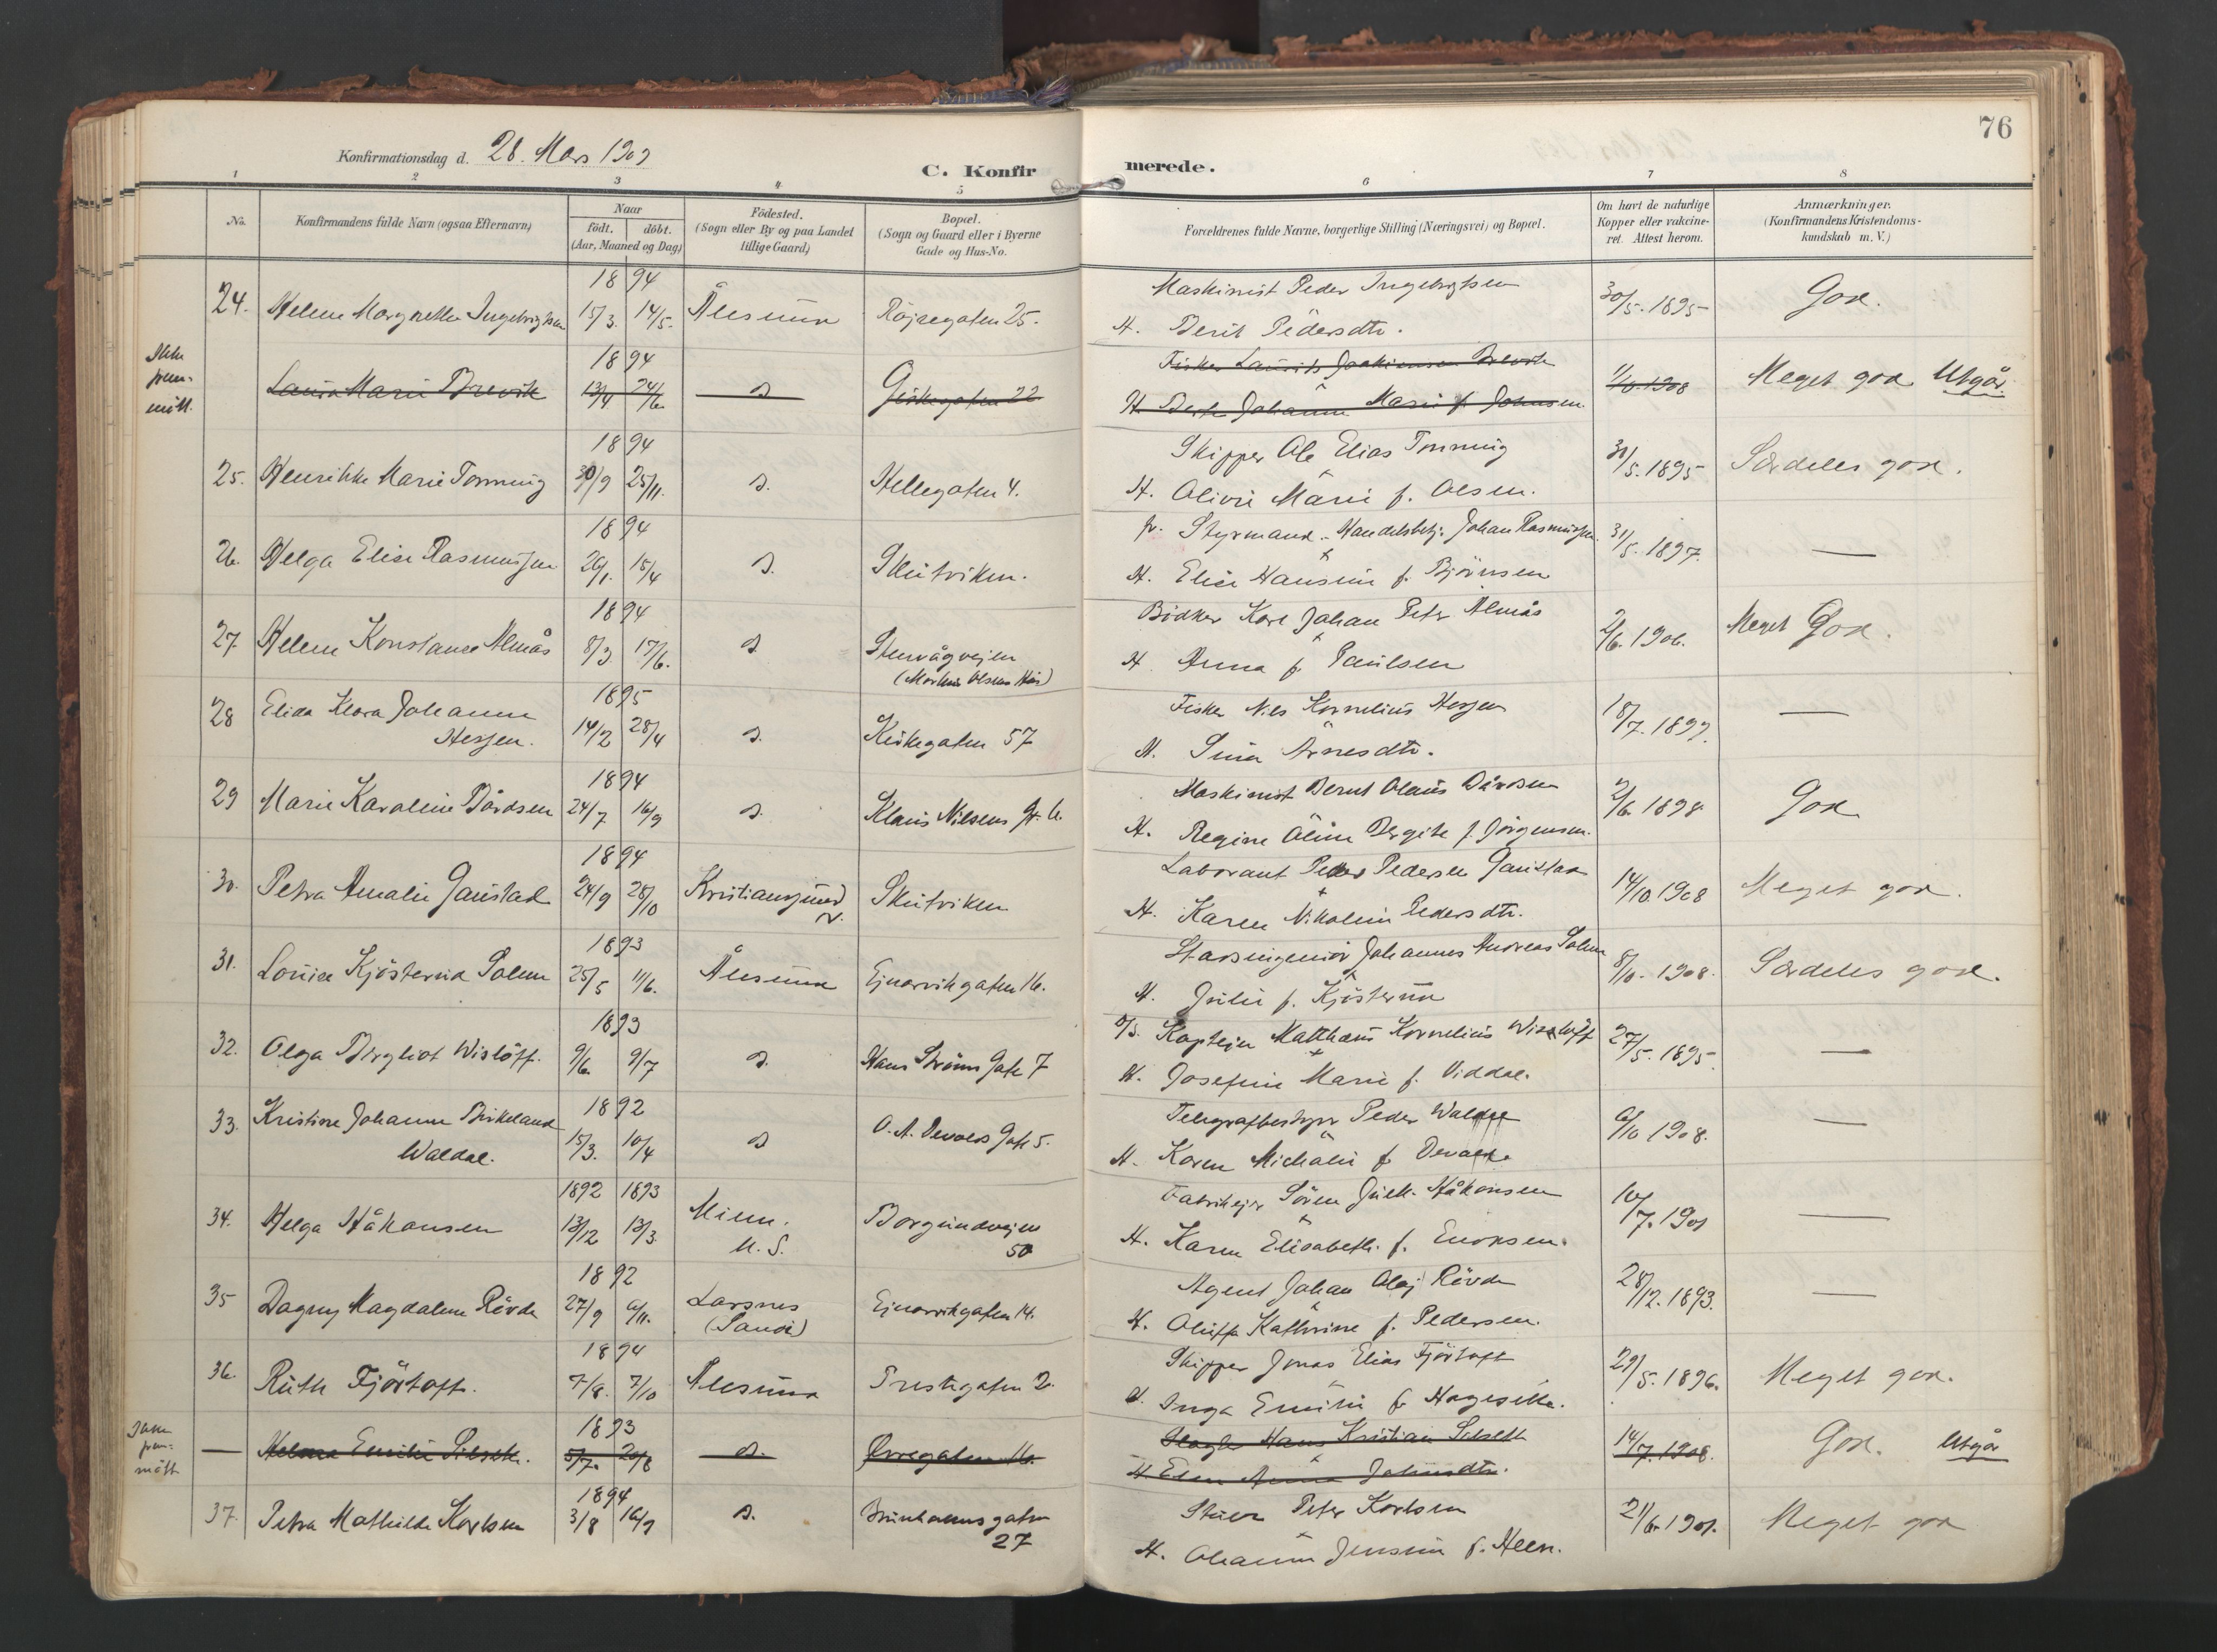 76
Konfirmationsdag d. 28. Mars 1909
C. Konfirmerede.
1 2 3 4 5 6 7 8
No.
Konfirmandens fulde Navn (ogsaa Efternavn)
Naar
födt. döbt.
(Aar, Maaned og Dag)
Födested.
(Sogn eller By og paa Landet
tillige Gaard)
Bopæl.
(Sogn og Gaard eller i Byerne
Gade og Hus-No.
Forældrenes fulde Navne, borgerlige Stilling (Næringsvei) og Bopæl.
Om havt de naturlige
Kopper eller vakcine-
ret. Attest herom.
Anmærkninger.
(Konfirmandens Kristendoms-
kundskab m. V.)
1894 Maskinist Peder Ingebrigtsen
24. Helene Margrethe Ingebrigtsen 15/3. 14/5. Ålesund Röjsegaten 25. 30/5. 1895 God.
H. Berit Pedersdtr.
Ikke frem-møtt. 1894 Fisker Laurits Joakimsen Brevik
Laura Marie Brevik 13/4 24/6 d Girkegaten 22 1/10.1908 Meget god Utgår
H. Berte Johanne Marie f. Johnsen.
1894 Skipper Ole Elias Tonning
25. Henrikke Marie Tonning 30/9 25/11. d. Hellegaten 4. 31/5. 1895 Særdeles god.
H. Olivie Marie f. Olsen.
1894 fr. Styrmand - Handelsbetj. Johan Rasmussen
26. Helga Elise Rasmussen 26/1. 15/4 d. Skutviken. 31/5. 1897. —
H. Elise Hansine f. Björnsen
1894 Bödker Karl Johan Peter Almås
27. Helene Konstance Almås 8/3 17/6. d Stenvågvejen 2/6. 1906. Meget God.
(Martin Olsens Hus)
H. Anna f. Paulsen
1895 Fisker Nils Kornelius Hessen
28 Elida Klara Johanne
Hessen. 14/2 28/4 d. Kirkegaten 57 18/7. 1899. —
H. Sina Arnesdtr.
1894 Maskinist Bernt Olaus Bårdsen
29 Marie Karoline Bårdsen 24/7 16/9 d. Klaus Nilsens Gt. 6. 2/6. 1898 God
H. Regine Oline Bergite f. Jörgensen.
1894 Laborant Peder Pedersen Gaustad
30. Petra Amalie Gaustad 24/9 28/10 Kristiansund N. Skutviken 14/10. 1908 Meget god.
H. Karen Nikoline Pedersdtr.
1893 Stadsingeniör Johannes Andreas Solem
31. Louise Kjösterud Solem 25/5 11/6. Ålesund Ejnarvikgaten 16. 8/10. 1908. Særdeles god.
H. Julie f. Kjösterud
1893 D/S. Kaptejn Matthæus Kornelius Wislöff
32. Olga Bergliot Wislöff. 9/6 9/7 d. Hans Ströms Gate 7 27/5. 1895. —
H. Josefine Marie f. Viddal.
1892 Telegrafbestyrer Peder Waldal
33. Kristine Johanne Birkeland
Waldal. 15/3. 10/4 d O. A. Devolds Gate 5. 6/10 1908. —
H. Karen Michaline f. Devold.
1892 1893 Fabrikejer Sören Julk. Håkonsen
34. Helga Håkonsen 13/12 13/3. Minn. U. S. Borgundvejen
50 10/7. 1901 —
H. Karen Elisabeth f. Enoksen.
1892 Agent Johan Olaj Rövde
35 Dagny Magdalene Rövde 27/9 6/11. Larsnes
(Sande) Ejnarvikgaten 14. 28/12. 1893. —
H. Oluffa Kathrine f. Pedersen.
1894 Skipper Jonas Elias Fjörtoft
36. Ruth Fjörtoft. 7/8. 7/10 Ålesund Prestegaten 2. 29/5. 1896. Meget god.
H. Inga Emilie f. Hageselle.
Ikke frem-møtt 1893 Slagter Hans Kristian
— Helene Emilie 5/7. 20/8 d. Örregaten 16. 14/7. 1908. God. Utgår
H. Elen Anna Johnsdtr.
1894 Stuer Peter Karlsen
37. Petra Mathilde Karlsen 3/8 16/9 d. Brunholmsgaten
27 21/6. 1901. Meget god
H. Olianne Jensine f. Heen.